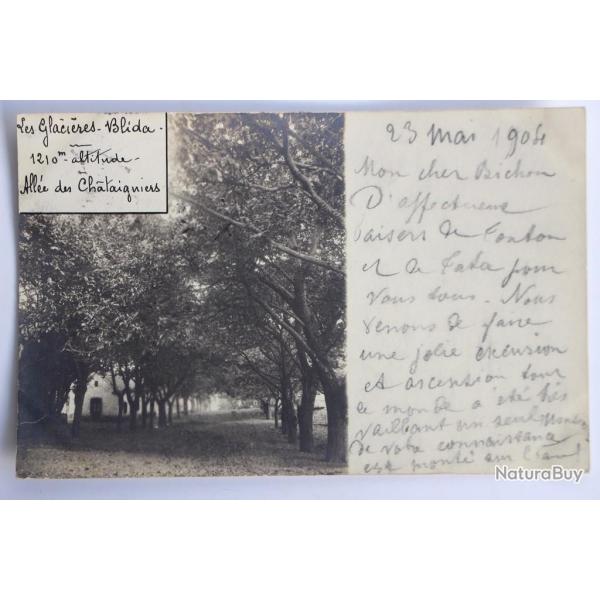 Les Glacières - Blida -
1210m - altitude -
Allée des Châtaigniers
23 mai 1904
Mon cher Bichon
D'affectueux
baisers de Tonton
et de Tata pour
vous tous - Nous
venons de faire
une jolie excursion
et ascention tout
le monde a été très
vaillant un seul
de votre connaissance
est monté sur
NaturaBuy